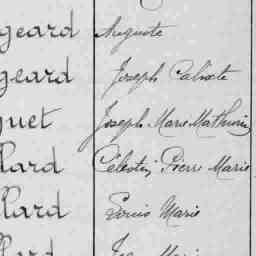 geard Auguste
geard Joseph Calixte
guet Joseph Marie Mathurin
lard Célestin Pierre Marie
llard Louis Marie